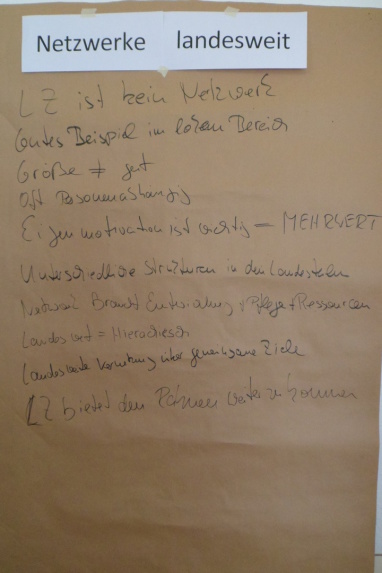 Netzwerke landesweit
LZ ist kein Netzwerk
Gutes Beispiel im lokalen Bereich
Größe ≠ gut
Oft Personenabhängig
Eigenmotivation ist wichtig = MEHRWERT
Unterschiedliche Strukturen in den Landesteilen
Netzwerk Braucht Entwicklung + Pflege + Ressourcen
Landesweit = Hierarchisch
Landesweite Vernetzung über gemeinsame Ziele
LZ bietet den Rahmen weiterzukommen